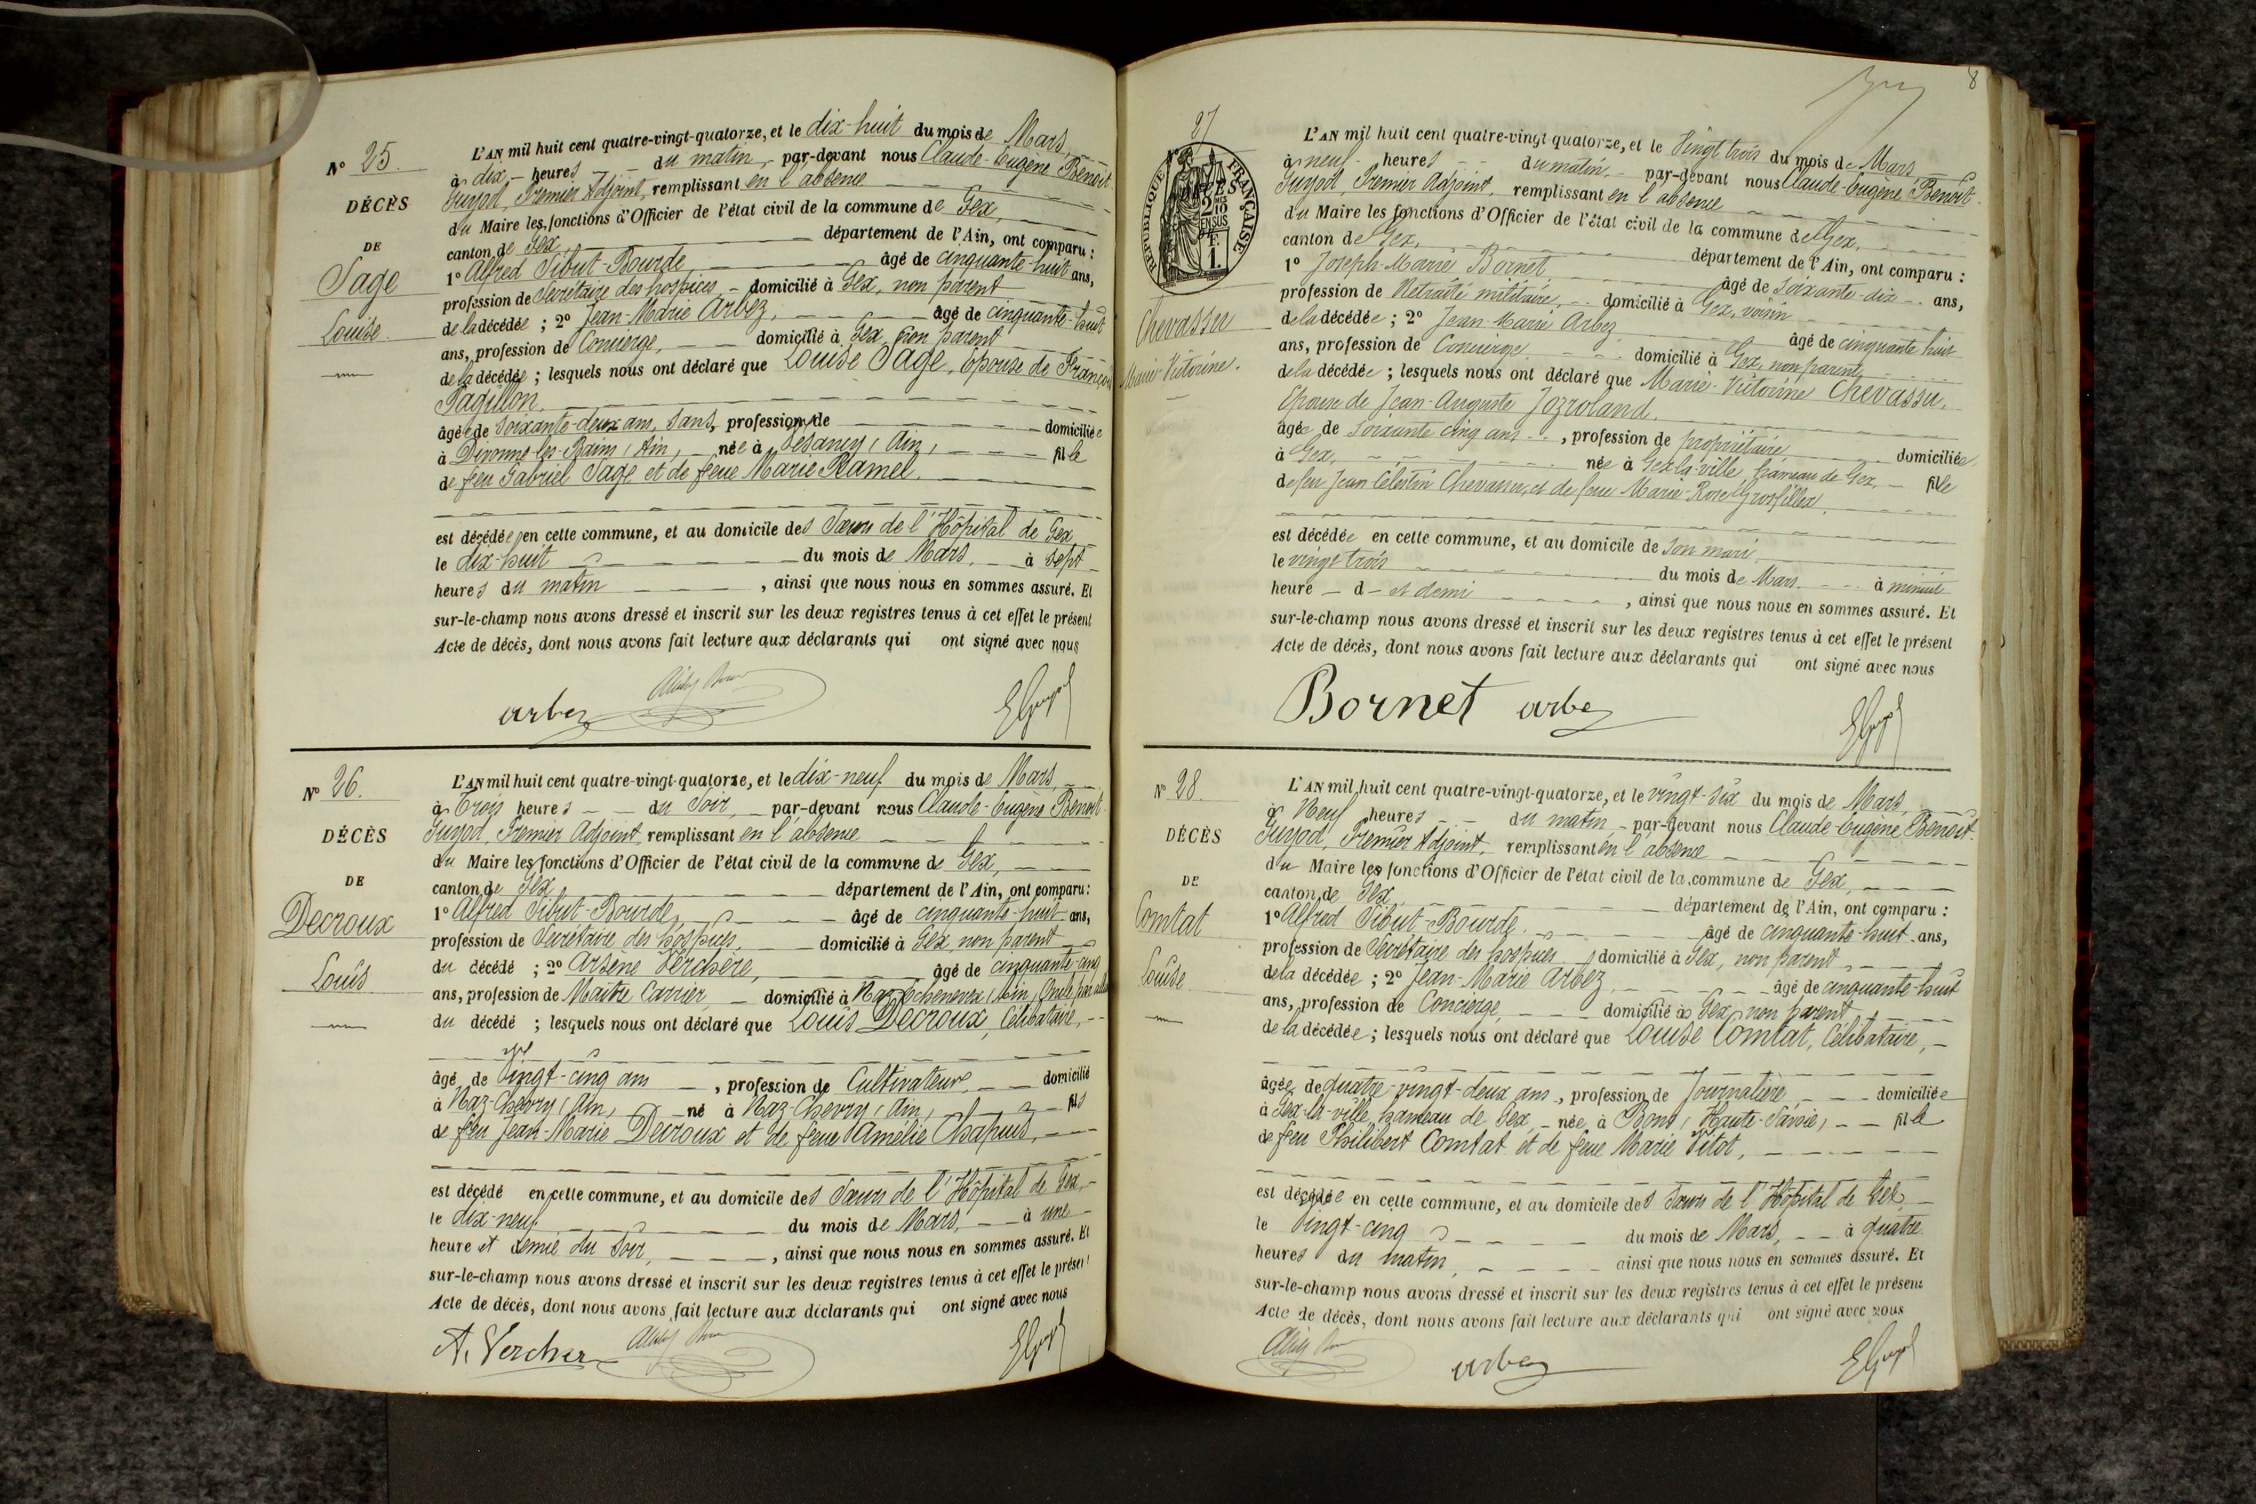 N° 25.
DÉCÈS
DE
Sage
Louise
L'AN mil huit cent quatre-vingt-quatorze, et le dix-huit du mois de Mars,
à dix heures du matin, par-devant nous Claude-Eugène Benoit
Guyod, Premier Adjoint, remplissant en l'absence
du Maire les fonctions d'Officier de l'état civil de la commune de Gex,
canton de Gex département de l'Ain, ont comparu :
1° Alfred Sibut-Bourde âgé de cinquante-huit ans,
profession de Secrétaire des hospices, domicilié à Gex, non parent
de la décédée ; 2° Jean-Marie Arbez, âgé de cinquante-huit
ans, profession de Concierge, domicilié à Gex, non parent
de la décédée ; lesquels nous ont déclaré que Louise Sage, Epouse de François
Pagillon,
âgée de Soixante-deux ans, Sans, profession de domiciliée
à Divonne-les-Bains (Ain), née à Vesancy (Ain), fille
de feu Gabriel Sage et de feue Marie Ramel.
est décédée en cette commune, et au domicile des Sœurs de l'Hôpital de Gex
le dix-huit du mois de Mars, à sept
heures du matin, ainsi que nous nous en sommes assuré. Et
sur-le-champ nous avons dressé et inscrit sur les deux registres tenus à cet effet le présent
Acte de décès, dont nous avons fait lecture aux déclarants qui ont signé avec nous
arbez EGuyod
N° 26.
DÉCÈS
DE
Decroux
Louis
L'AN mil huit cent quatre-vingt-quatorze, et le dix-neuf du mois de Mars,
à Trois heures du Soir, par-devant nous Claude-Eugène Benoit
Guyod, Premier Adjoint, remplissant en l'absence
du Maire les fonctions d'Officier de l'état civil de la commune de Gex,
canton de Gex département de l'Ain, ont comparu :
1° Alfred Sibut-Bourde, âgé de cinquante-huit ans,
profession de Secrétaire des hospices, domicilié à Gex non parent
du décédé ; 2° Arsène Verchère, âgé de cinquante-cinq
ans, profession de Maître Carrier domicilié à Echenevex (Ain) Oncle par
du décédé ; lesquels nous ont déclaré que Louis Decroux, Célibataire,
âgé de Vingt-cinq ans, profession de Cultivateur, domicilié
à Naz-Chevry (Ain), né à Naz-Chevry (Ain), fils
de feu Jean-Marie Decroux et de feue Amélie Chapuis,
est décédé en cette commune, et au domicile des Sœurs de l'Hôpital de Gex,
le dix-neuf du mois de Mars, à une
heure et demie du Soir, ainsi que nous nous en sommes assuré. Et
sur-le-champ nous avons dressé et inscrit sur les deux registres tenus à cet effet le présent
Acte de décès, dont nous avons fait lecture aux déclarants qui ont signé avec nous
A. Vercher EGuyod
8
27
RÉPUBLIQUE FRANÇAISE
2 10
EN SUS
F.
1.
Chevassu
Marie-Victorine.
L'AN mil huit cent quatre-vingt quatorze, et le Vingt trois du mois de Mars
à neuf heures du matin, par-devant nous Claude-Eugène Benoit
Guyod, Premier Adjoint, remplissant en l'absence
du Maire les fonctions d'Officier de l'état civil de la commune de Gex,
canton de Gex, département de l'Ain, ont comparu :
1° Joseph-Marie Bornet âgé de Soixante-dix ans,
profession de Retraité militaire, domicilié à Gex, voisin
de la décédée ; 2° Jean-Marie Arbez âgé de cinquante huit
ans, profession de Concierge domicilié à Gex, non parent
de la décédée ; lesquels nous ont déclaré que Marie-Victorine Chevassu,
Epouse de Jean-Auguste Jozroland.
âgée de Soixante cinq ans, profession de propriétaire domiciliée
à Gex, née à Gex-la-ville, hameau de Gex, fille
de feu Jean Célestin Chevassu, et de feue Marie-Rose Grosfillex.
est décédée en cette commune, et au domicile de son mari
le vingt trois du mois de Mars à minuit
heure d et demi, ainsi que nous nous en sommes assuré. Et
sur-le-champ nous avons dressé et inscrit sur les deux registres tenus à cet effet le présent
Acte de décès, dont nous avons fait lecture aux déclarants qui ont signé avec nous
Bornet arbez EGuyod
N° 28.
DÉCÈS
DE
Comtat
Louise
L'AN mil huit cent quatre-vingt-quatorze, et le vingt-six du mois de Mars,
à Neuf heures du matin, par-devant nous Claude-Eugène Benoit
Guyod, Premier Adjoint, remplissant en l'absence
du Maire les fonctions d'Officier de l'état civil de la commune de Gex,
canton de Gex, département de l'Ain, ont comparu :
1° Alfred Sibut-Bourde, âgé de cinquante-huit ans,
profession de Secrétaire des hospices, domicilié à Gex, non parent
de la décédée ; 2° Jean-Marie Arbez, âgé de cinquante-huit
ans, profession de Concierge, domicilié à Gex, non parent
de la décédée ; lesquels nous ont déclaré que Louise Comtat, Célibataire,
âgée de quatre-vingt-deux ans, profession de Journalière, domiciliée
à Gex-la-ville, hameau de Gex, née à Bons (Haute-Savoie), fille
de feu Philibert Comtat et de feue Marie Vitot,
est décédée en cette commune, et au domicile des Sœurs de l'Hôpital de Gex,
le Vingt-cinq du mois de Mars, à quatre
heures du matin, ainsi que nous nous en sommes assuré. Et
sur-le-champ nous avons dressé et inscrit sur les deux registres tenus à cet effet le présent
Acte de décès, dont nous avons fait lecture aux déclarants qui ont signé avec nous
arbez EGuyod